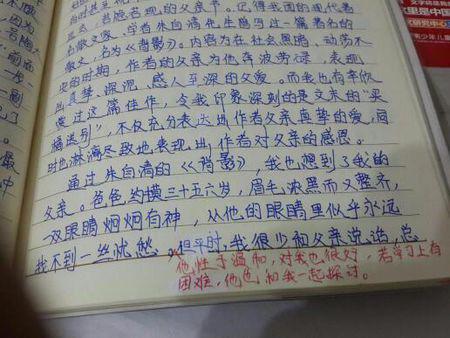 的父亲节。记得我国的现代著
名散文家、学者朱自清先生曾写过一篇著名的
散文,名为《背影》。内容为在社会黑暗、动荡不
的时期,作者的父亲为他奔波劳碌,表现
出真挚、深沉、感人至深的父爱。而我也有幸
读过这篇佳作,令我印象深刻的是文末的“买
橘送别”,不仅充分表达出作者父亲真挚的爱,同
时也淋漓尽致地表现出作者对父亲的感恩。
通过朱自清的《背影》,我也想到了我的
父亲。爸爸约摸三十五六岁,眉毛浓黑而又整齐,
一双眼睛炯炯有神,从他的眼睛里似乎永远
找不到一丝忧愁。但平时,我很少和父亲说话,总
他性子温和,对我也很好,若学习上有
困难,他也和我一起探讨。
里是中国
研究中心
青少年儿